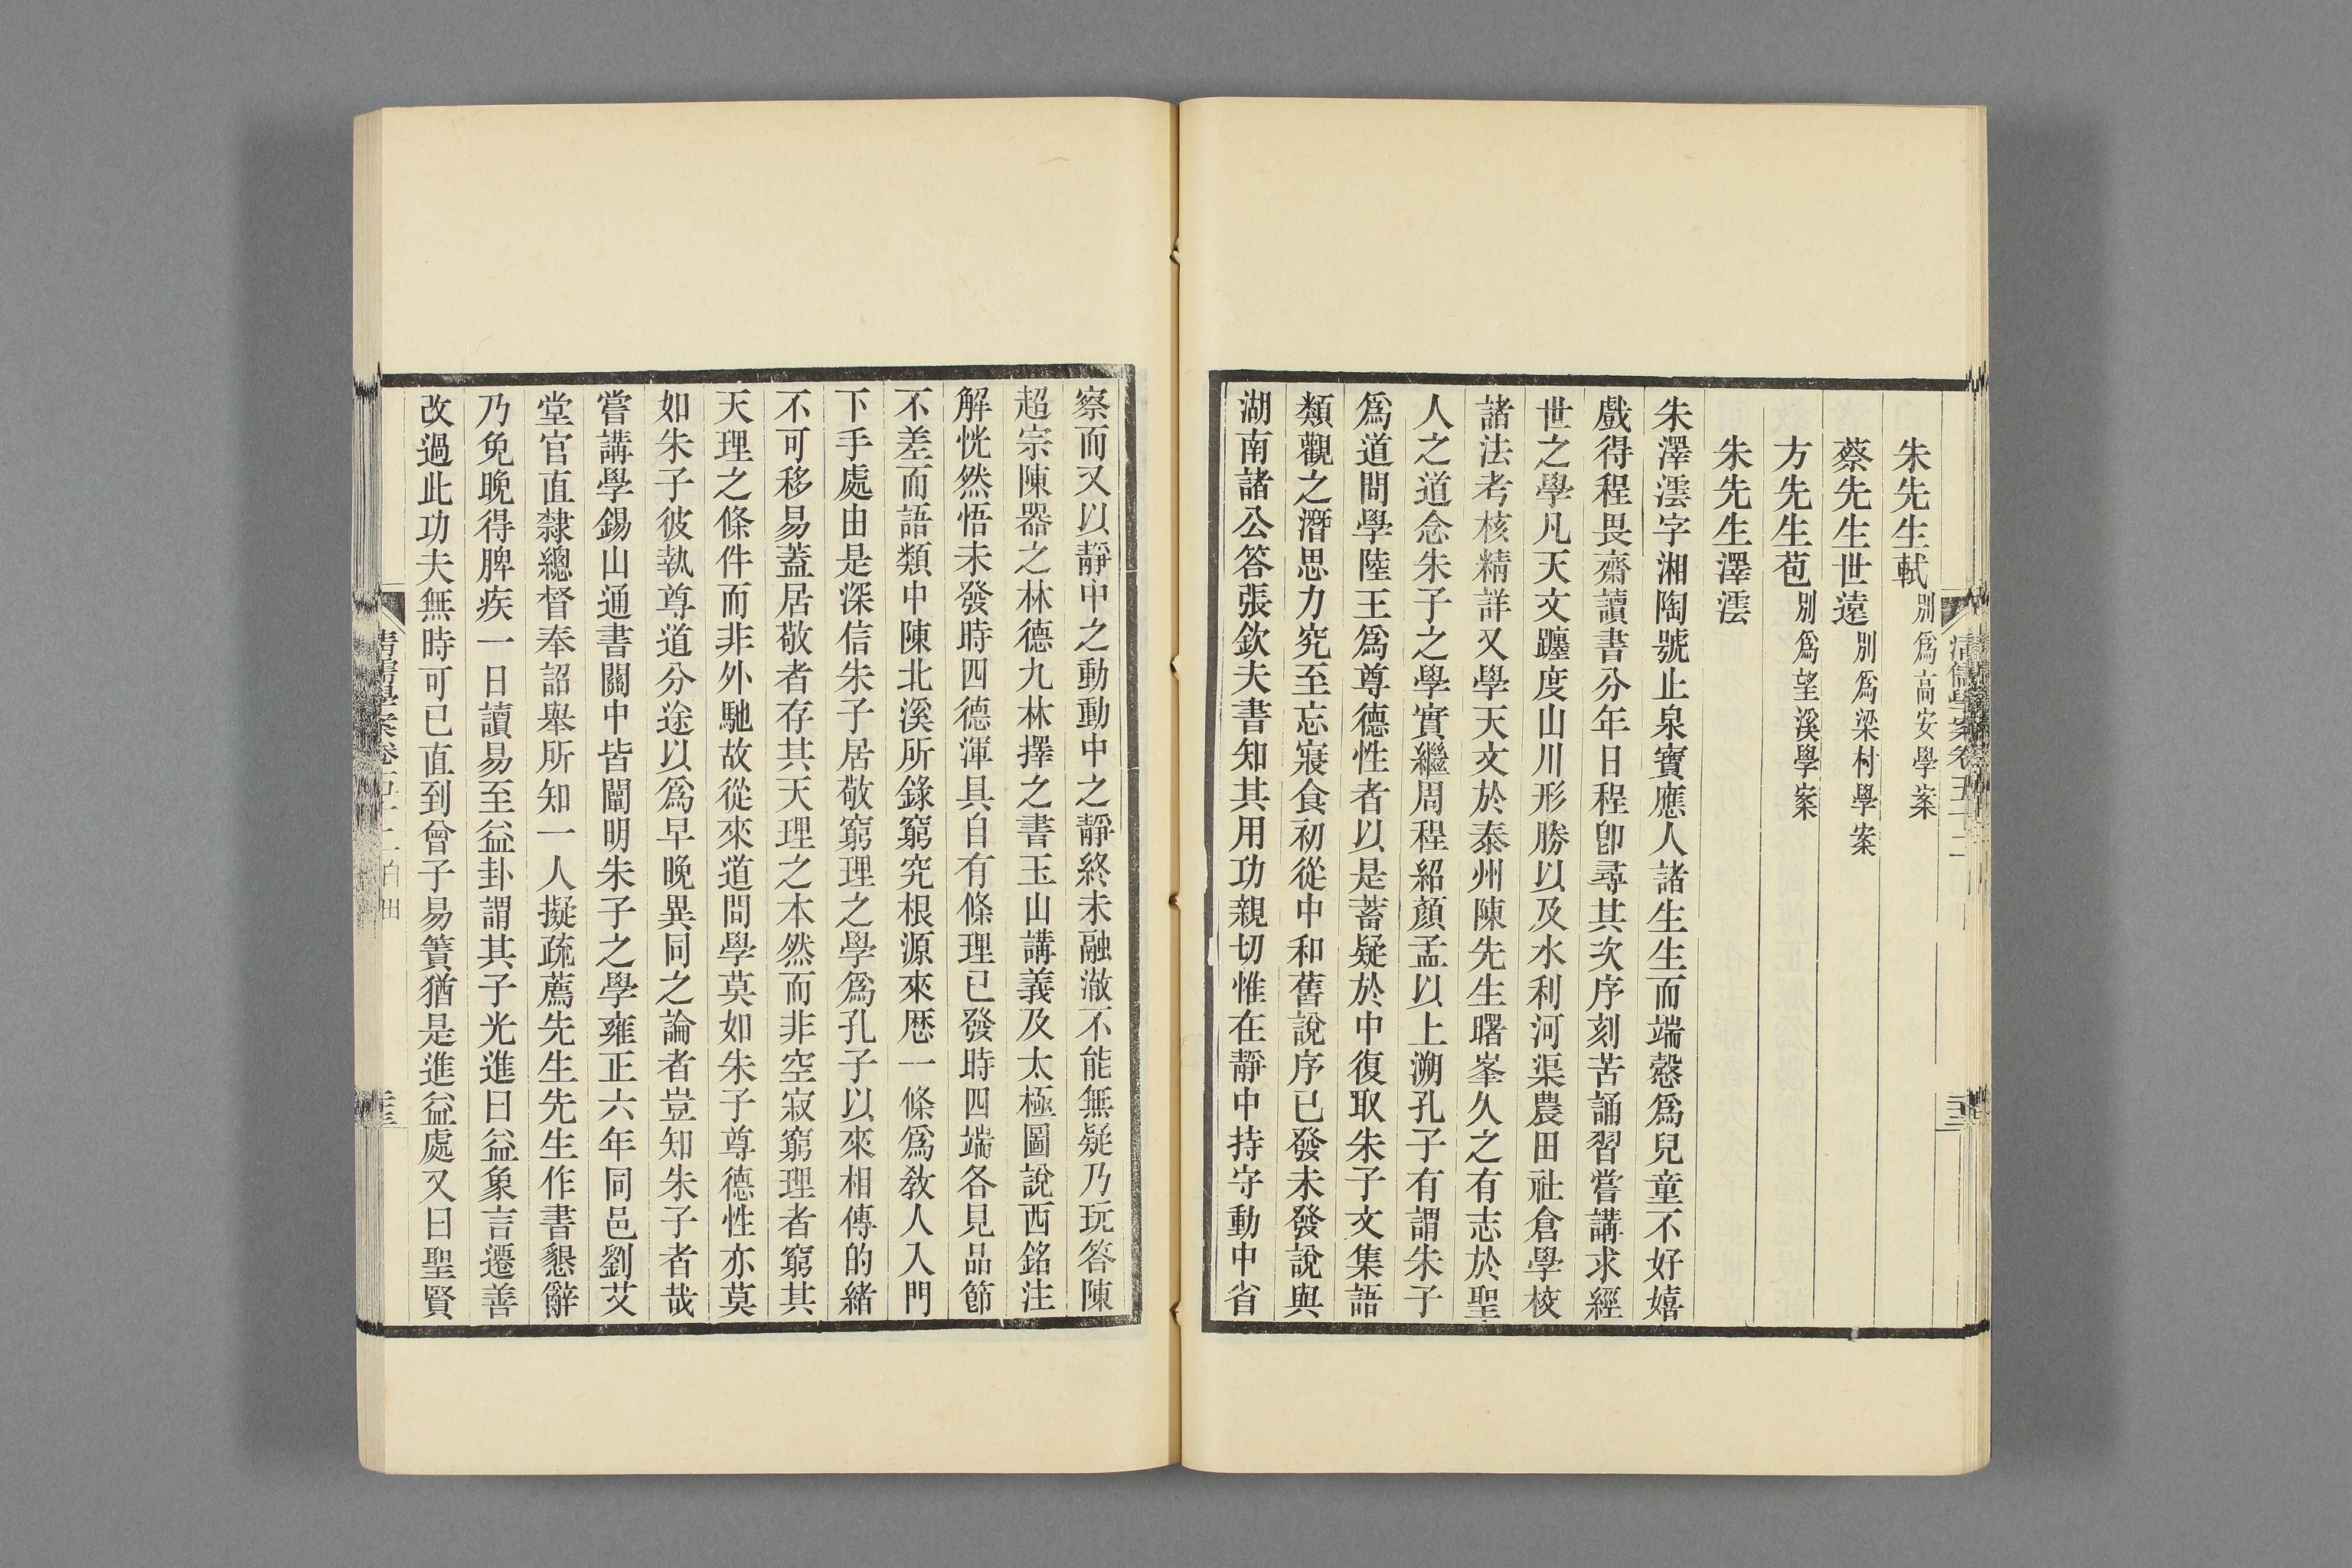 朱先生軾別爲高安學案
蔡先生世遠別爲梁村學案
方先生苞別爲望溪學案
朱先生澤澐
朱澤澐字湘陶號止泉寶應人諸生生而端慤爲兒童不好嬉
戲得程畏齋讀書分年日程卽尋其次序刻苦誦習嘗講求經
世之學凡天文躔度山川形勝以及水利河渠農田社倉學校
諸法考核精詳又學天文於泰州陳先生曙峯久之有志於聖
人之道念朱子之學實繼周程紹顏孟以上溯孔子有謂朱子
爲道問學陸王爲尊德性者以是蓄疑於中復取朱子文集語
類觀之潛思力究至忘寢食初從中和舊說序已發未發說與
湖南諸公答張欽夫書知其用功親切惟在靜中持守動中省
察而又以靜中之動動中之靜終未融澈不能無疑乃玩答陳
超宗陳器之林德九林擇之書玉山講義及太極圖說西銘注
解恍然悟未發時四德渾具自有條理已發時四端各見品節
不差而語類中陳北溪所錄窮究根源來歷一條爲敎人入門
下手處由是深信朱子居敬窮理之學爲孔子以來相傳的緒
不可移易蓋居敬者存其天理之本然而非空寂窮理者窮其
天理之條件而非外馳故從來道問學莫如朱子尊德性亦莫
如朱子彼執尊道分途以爲早晚異同之論者豈知朱子者哉
嘗講學錫山通書關中皆闡明朱子之學雍正六年同邑劉艾
堂官直隸總督奉詔舉所知一人擬疏薦先生先生作書懇辭
乃免晚得脾疾一日讀易至益卦謂其子光進曰益象言遷善
改過此功夫無時可已直到曾子易簀猶是進益處又曰聖賢
清儒學案卷五十二